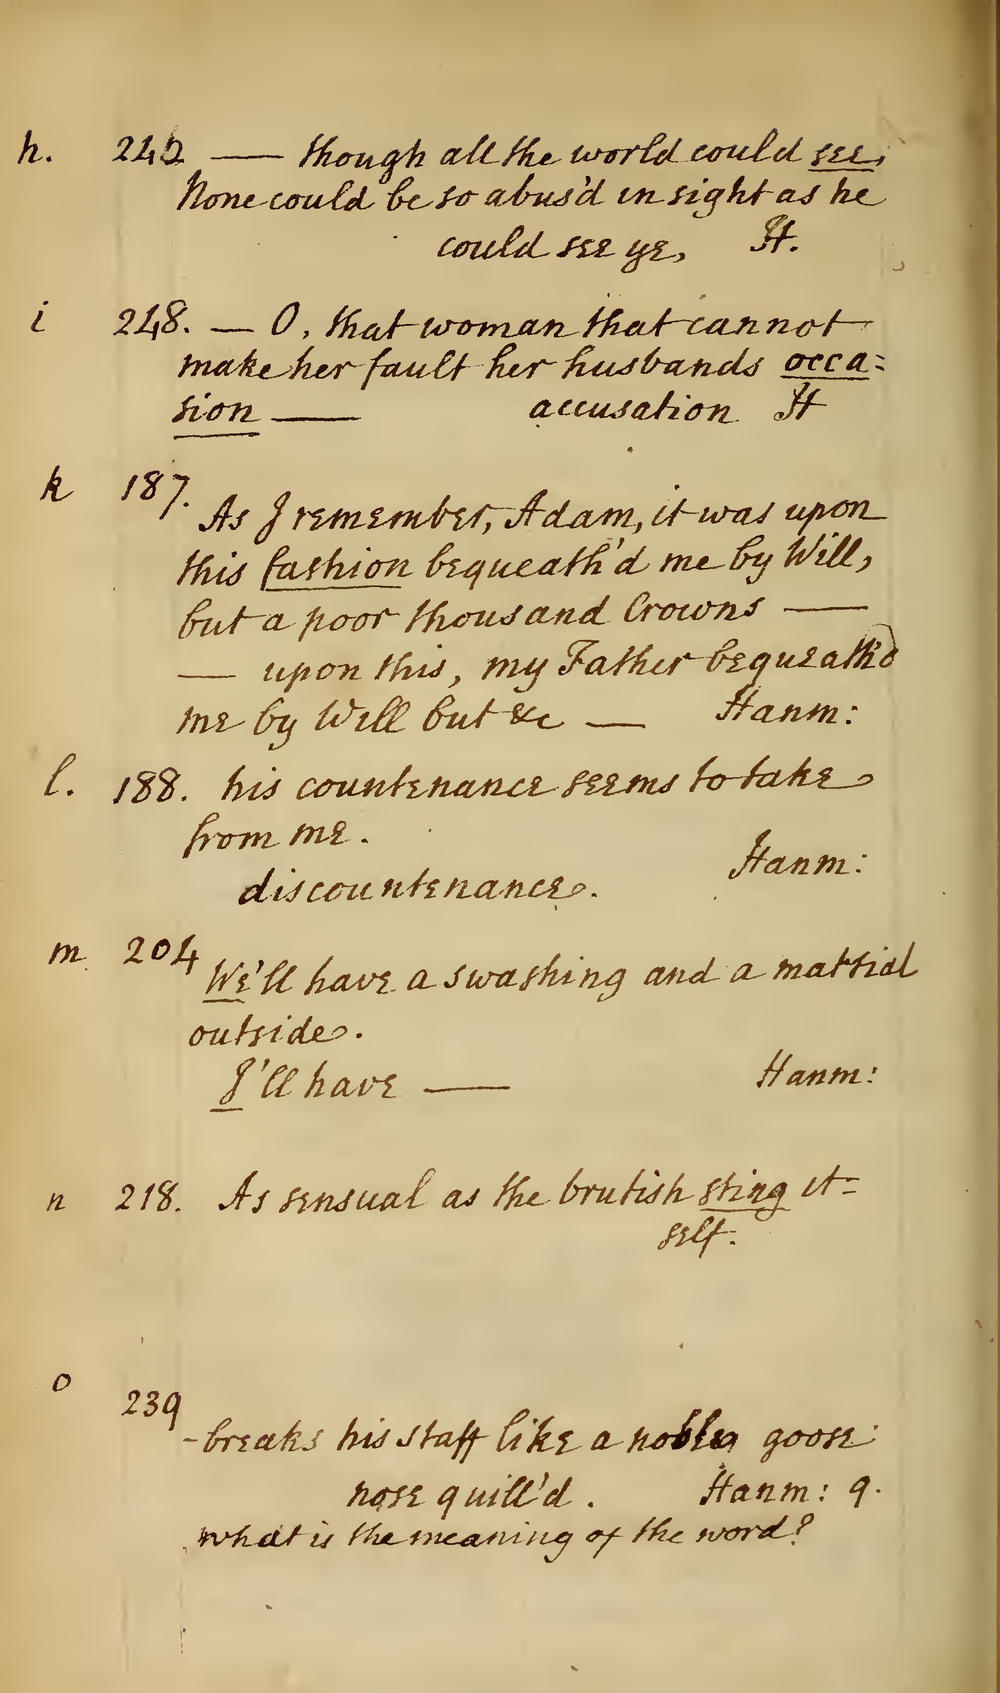 h. 242 —— though all the world could see,
None could be so abus'd in sight as he
could see ye, H.
i 248. — O, that woman that cannot
make her fault her husbands occa=
sion —— accusation H
k 187.
As I remember, Adam, it was upon
this fashion bequeath'd me by Will,
but a poor thousand Crowns ——
— upon this, my Father bequeath'd
me by Will but &c — Hanm:
l. 188. his countenance seems to take
from me.
Hanm:
discountenance.
m 204
We'll have a swashing and a martial
outside.
I'll have —— Hanm:
n 218. As sensual as the brutish sting it=
self.
o 239
-breaks his staff like a noble goose
nose quill'd. Hanm: q.
what is the meaning of the word?